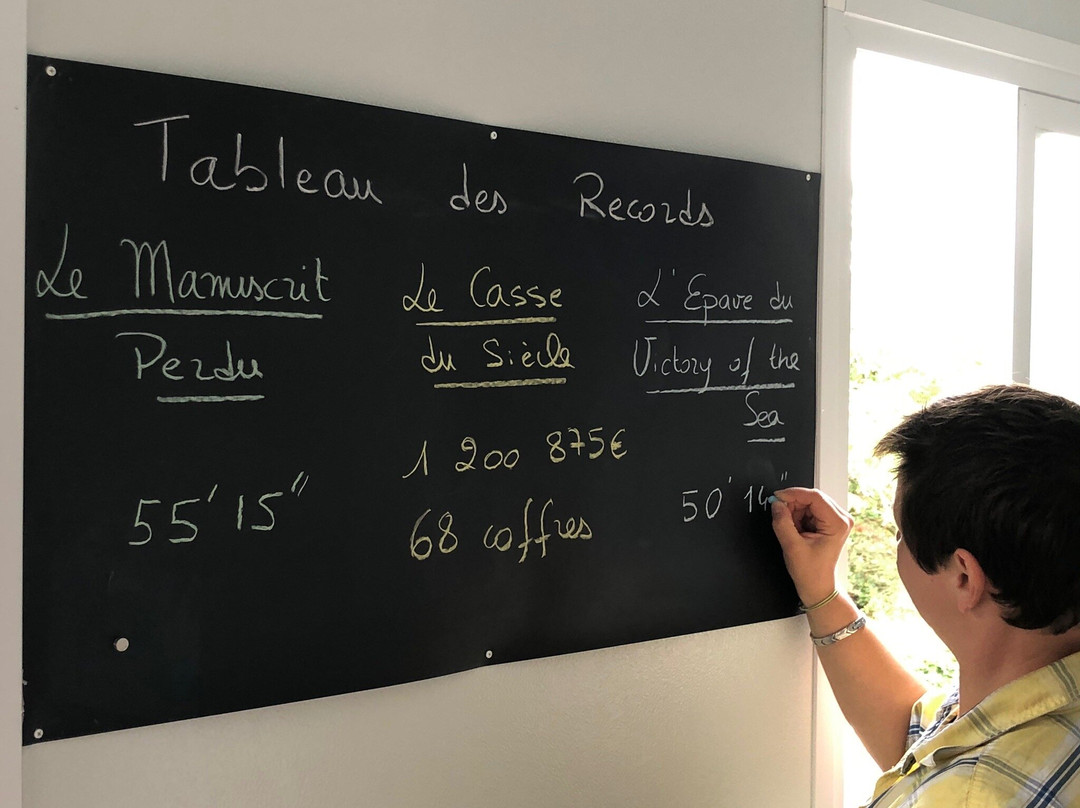 Tableau des Records
Le Manuscrit
Perdu
55' 15"
Le Casse
du Siècle
1 200 875€
68 coffres
L'Epave du
Victory of the
Sea
50' 14"